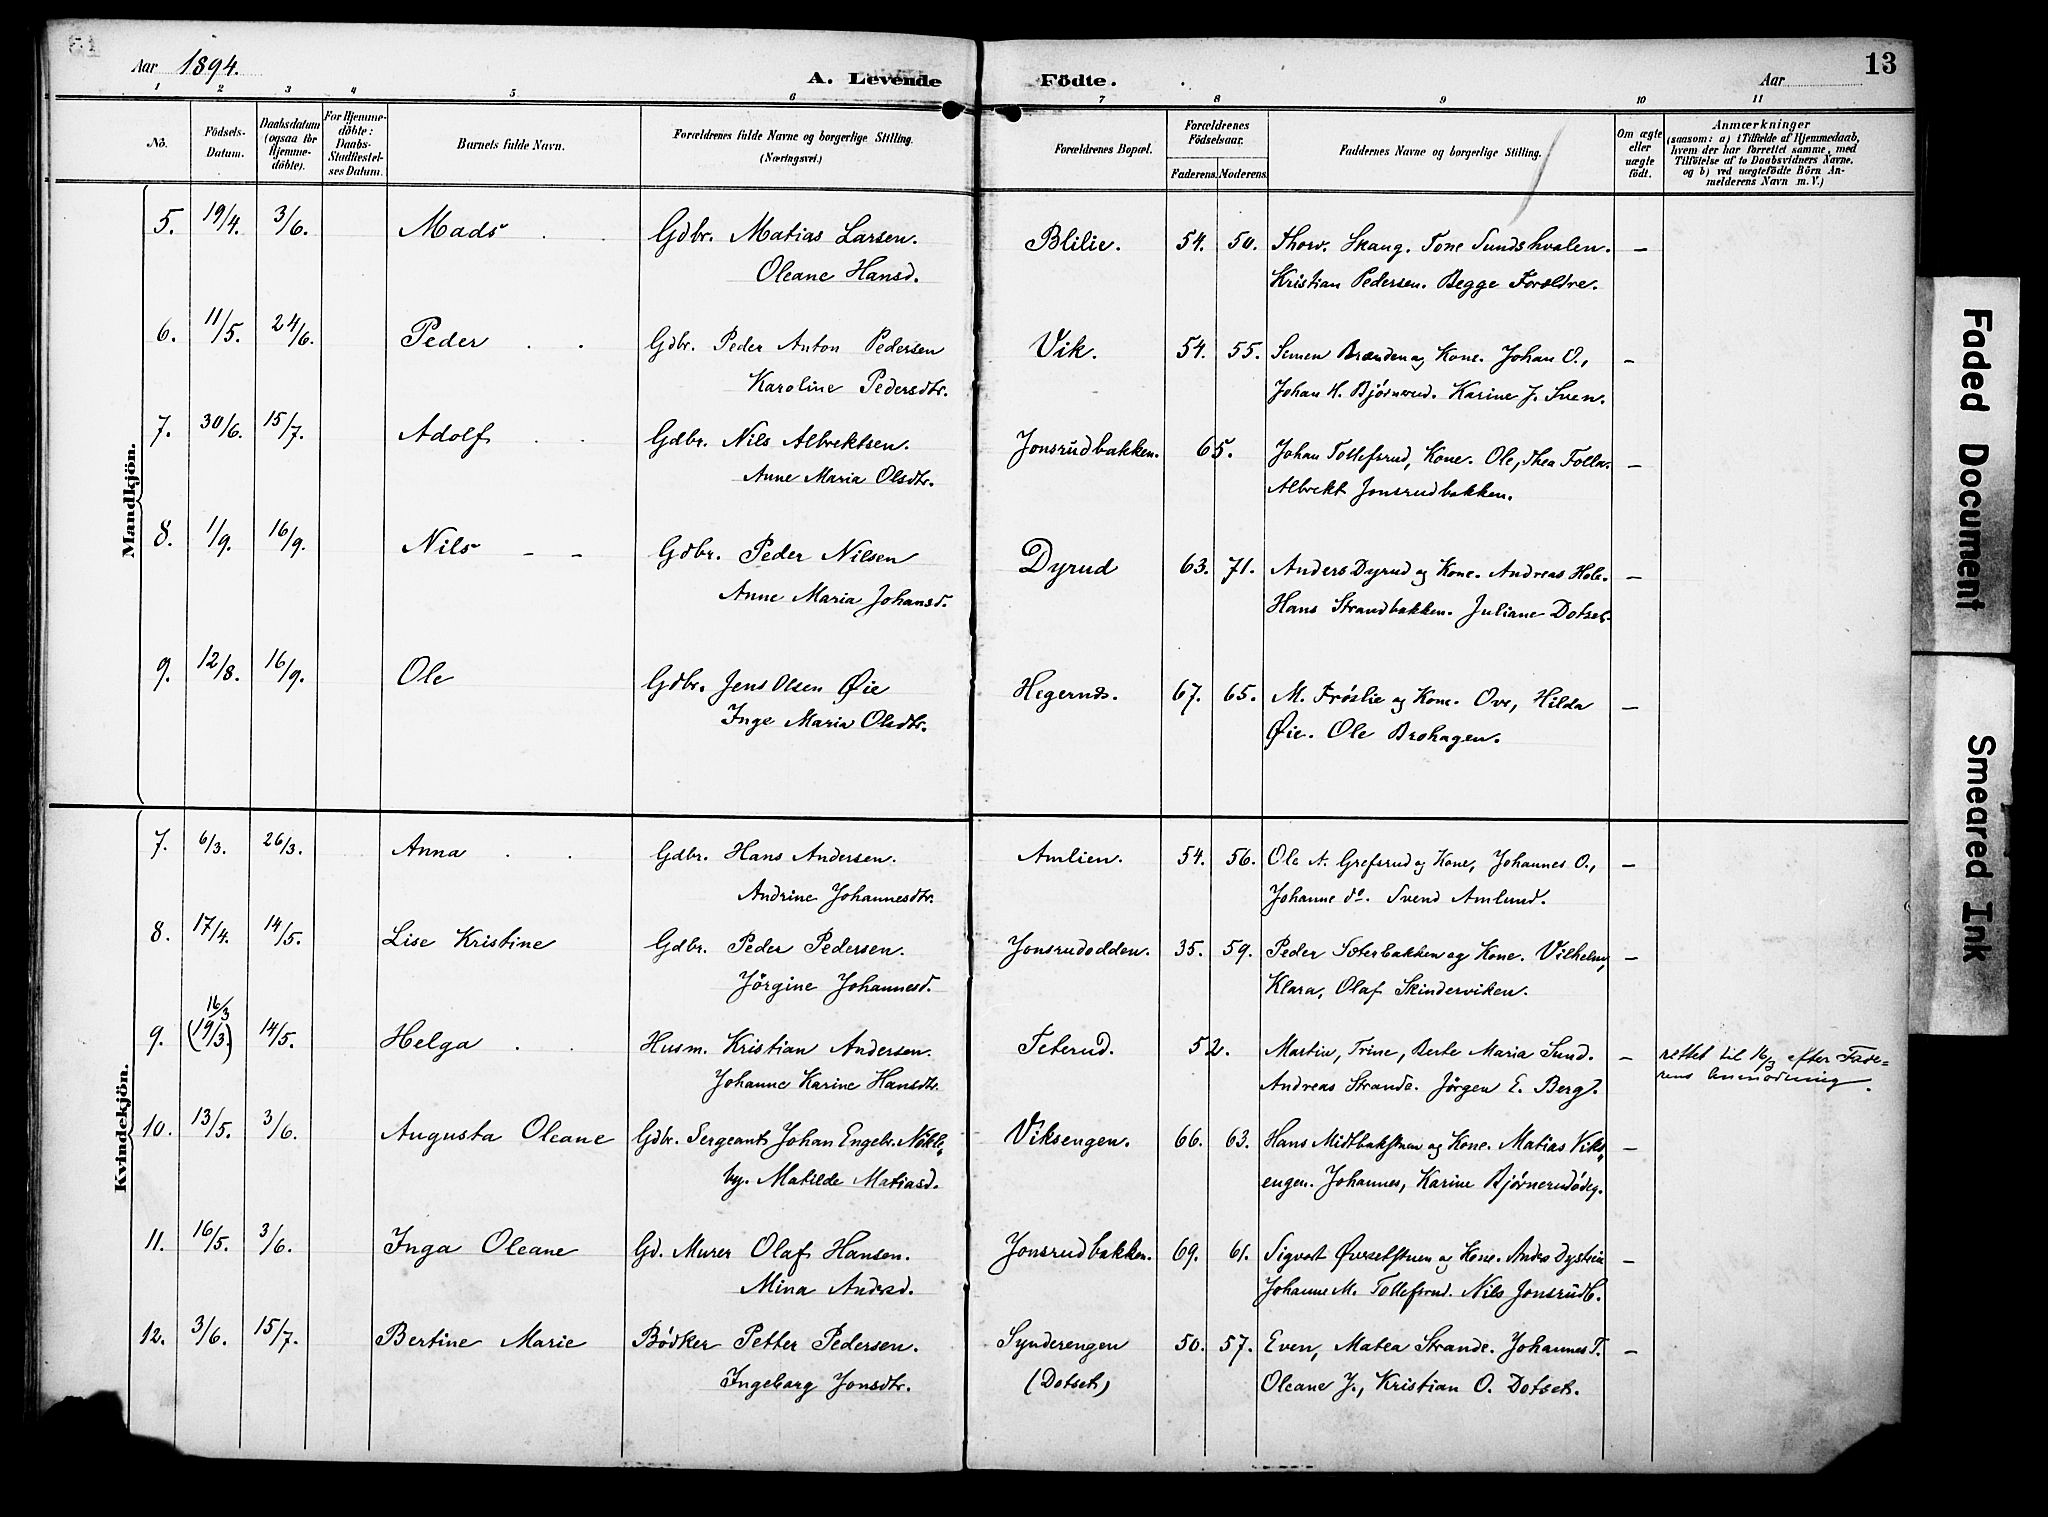 Aar 1894.
A. Levende
Födte.
Aar
13
1 2 3 4 5 6 7 8 9 10 11
Nö.
Födsels-Datum.
Daabsdatum (ogsaa for Hjemme-döbte).
For Hjemme-döbte: Daabs-Stadfæstel-ses Datum.
Barnets fulde Navn.
Forældrenes fulde Navne og borgerlige Stilling. (Næringsvei.)
Forældrenes Bopæl.
Forældrenes Födselsaar.
Faderens. Moderens.
Faddernes Navne og borgerlige Stilling.
Om ægte eller uægte födt.
Anmærkninger
(saasom: a) i Tilfælde af Hjemmedaab, hvem der har forrettet samme, med Tilföielse af to Daabsvidners Navne, og b) ved uægtefödte Börn An-melderens Navn m. V.)
Mandkjön.
5. 19/4. 3/6. Mads Gdbr. Matias Larsen. Blilie. 54. 50. Thorv. Skaug. Tone Sundshvalen. —
Oleane Hansd. Kristian Pedersen. Begge Forældre.
6. 11/5. 24/6. Peder Gdbr. Peder Anton Pedersen Vik. 54. 55. Semen Brænden og Kone. Johan O., —
Karoline Pedersdtr. Johan H. Bjørnerud. Karine J. Sven.
7. 30/6. 15/7. Adolf Gdbr. Nils Albrektsen. Jonsrudbakken. 65. Johan Tollefsrud, Kone. Ole, Thea Tolla. —
Anne Maria Olsdtr. Albrekt Jonsrudbakken.
8. 1/9. 16/9. Nils Gdbr. Peder Nilsen Dyrud 63. 71. Anders Dyrud og Kone. Andreas Hole. —
Anne Maria Johansd. Hans Strandbakken. Juliane Dotset.
9. 12/8. 16/9. Ole Gdbr. Jens Olsen Øie Hegernæs. 67. 65. M. Frøslie og Kone. Ove, Hilda —
Inge Maria Olsdtr. Øie. Ole Brohagen.
Kvindekjön.
7. 6/3. 26/3. Anna Gdbr. Hans Andersen. Amlien. 54. 56. Ole A. Grefsrud og Kone, Johannes O., —
Andrine Johannesdtr. Johanne do. Svend Amlund.
8. 17/4. 14/5. Lise Kristine Gdbr. Peder Pedersen. Jonsrudodden. 35. 59. Peder Sæterbakken og Kone. Vilhelm, —
Jörgine Johannesd. Klara, Olaf Skinderviken.
16/3
9. (19/3) 14/5. Helga Husm. Kristian Andersen. Teterud. 52. Martin, Trine, Berte Maria Sund. — rettet til 16/3 efter Fade-
Johanne Karine Hansdtr. Andreas Strande. Jørgen E. Berg. rens Anmodning.
10. 13/5. 3/6. Augusta Oleane Gdbr. Sergeant Johan Engebr. Nökle- Viksengen. 66. 63. Hans Midtbakstuen og Kone. Matias Viks- —
by. Matilde Matiasd. engen. Johannes, Karine Bjørnerudødeg.
11. 16/5. 3/6. Inga Oleane Gd. Murer Olaf Hansen. Jonsrudbakken. 69. 61. Sigvat Øverselstuen og Kone. Andrs Dystein —
Mina Andrsd. Johanne M. Tollefsrud. Nils Jonsrudb.
12. 3/6. 15/7. Bertine Marie Bödker Petter Pedersen. Synderengen 50. 57. Even, Matea Strande. Johannes T. —
Ingeborg Jonsdtr. (Dotset) Oleane J., Kristian O. Dotset.
Faded Document
Smeared Ink